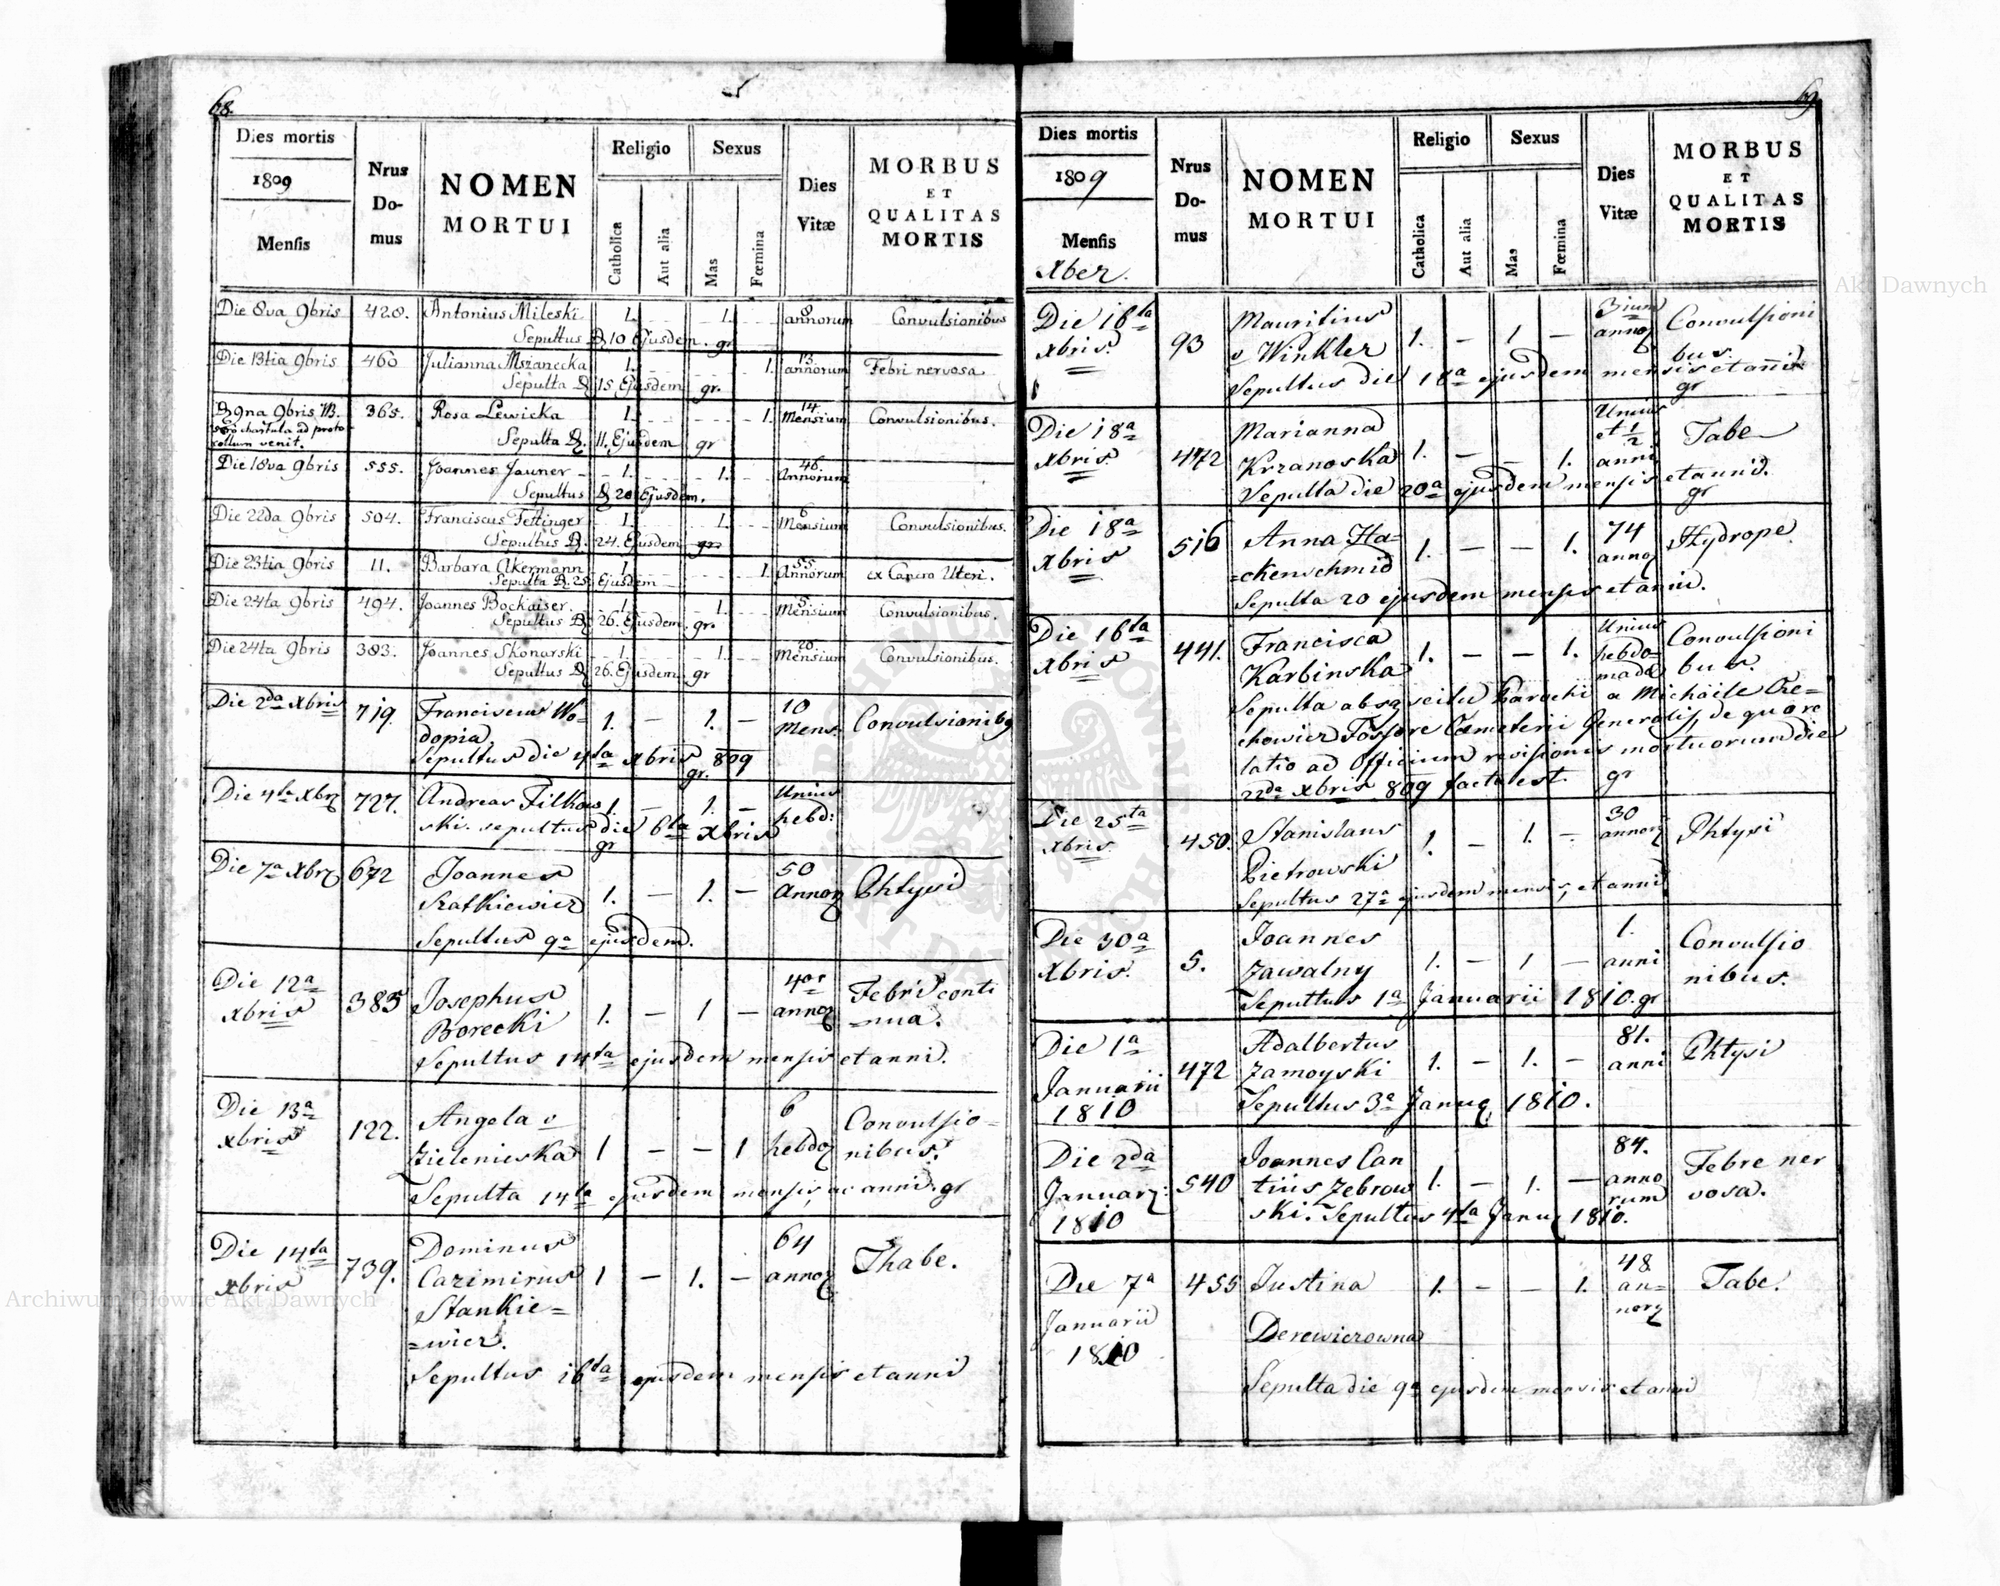 68.
Dies mortis
1809
Mensis
Nrus
Do-
mus
NOMEN
MORTUI
Religio
Catholica
Aut alia
Sexus
Mas
Fœmina
Dies
Vitæ
MORBUS
ET
QUALITAS
MORTIS
Die 8va 9bris 428. Antonius Mileski 1. 1. 8 annorum Convulsionibus
Sepultus D. 10 Ejusdem. gr
Die 13tia 9bris 460 Julianna Mszanecka 1. 1. 13 annorum Febri nervosa
Sepulta D. 15. Ejusdem gr.
D. 9na 9bris NB. 365. Rosa Lewicka 1. 1. 14 Mensium Convulsionibus.
chartula ad proto
collum venit. Sepulta D. 11. Ejusdem gr
Die 18va 9bris 555. Joannes Jauner 1. 1. 46. Annorum
Sepultus D. 20 Ejusdem.
Die 22da 9bris 504. Franciscus Fettinger 1. 1. 6 Mensium Convulsionibus.
Sepultus D. 24. Ejusdem gr
Die 23tia 9bris 11. Barbara Akermann 1. 1. 55 Annorum ex Cancro Uteri.
Sepulta D. 25. Ejusdem
Die 24ta 9bris 494. Joannes Bockaiser. 1. 1. 5 Mensium Convulsionibus.
Sepultus D. 26. Ejusdem. gr.
Die 24ta 9bris 383. Joannes Skonarski 1. 1. 20. Mensium Convulsionibus.
Sepultus D. 26. Ejusdem gr
Die 2da Xbris 719. Franciscus Wo- 1. — 1. — 10 Mens: Convulsionibg
dopia.
Sepultus die 4ta Xbris 809
gr.
Die 4ta Xbr 727. Andreas Filkow 1. — 1. — Unius hebd:
ski. sepultus die 6ta Xbris
gr
Die 7a Xbr 672 Joannes 1. — 1. — 50 Annor Phtysi
Szatkiewicz
Sepultus 9a ejusdem.
Die 12a Xbris 385 Josephus 1. — 1 — 40 annor Febri conti
Borecki =nua.
Sepultus 14ta ejusdem mensis et anni.
Die 13a Xbris 122. Angela v 1 — — 1 6 hebdo Convulsio=
Zielenieska nibus.
Sepulta 14ta ejusdem mensis, ac anni. gr
Die 14ta Xbris 739. Dominus 1 — 1. — 64 anno Thabe.
Cazimirus
Stankie=
=wicz.
Sepultus 16ta ejusdem mensis et anni
69
Dies mortis
1809
Mensis
Xber.
Nrus
Do-
mus
NOMEN
MORTUI
Religio
Catholica
Aut alia
Sexus
Mas
Fœmina
Dies
Vitæ
MORBUS
ET
QUALITAS
MORTIS
Die 16ta Xbris. 93 Mauritius 1. — 1 — 3ium anno Convulsioni
v Winkler bus.
Sepultus die 18a ejusdem mensis et anni
gr
Die 18a Xbris. 472 Marianna 1. — — 1. Unius et 1/2 anni Tabe
Krzanoska
Sepulta die 20a ejusdem mensis et anni.
gr
Die 18a Xbris 516 Anna Ha= 1. — — 1. 74 anno Hydrope
=ckenschmid
Sepulta 20 ejusdem mensis et anni.
Die 16ta Xbris 441. Francisca 1. — — 1. Unius hebdo= mada Convulsioni
Karbinska bus.
Sepulta absq scitu Parochi a Michaele Ore=
chowicz Fossore Cœmeterii Generalis, de quo re
latio ad Officium revisionis mortuorum die
22da Xbris 809 facta est. gr
Die 25ta Xbris 450. Stanislaus 1. — 1. — 30 annor Phtysi
Pietrowski
Sepultus 27a ejusdem mensis, et anni
Die 30a Xbris. 5. Joannes 1. — 1 — 1. anni Convulsio
Zawalny nibus.
Sepultus 1a Januarii 1810. gr
Die 1a Januarii 1810 472 Adalbertus 1. — 1. — 81. anni Phtysi
Zamoyski
Sepultus 3a Janu 1810.
Die 2da Januar: 1810 540 Joannes Can 1. — 1. — 84. anno rum Febre ner
tius Zebrow vosa.
ski. Sepultus 4ta Janu 1810.
Die 7a Januarii 1810 455 Justina 1. — — 1. 48 an= nor Tabe.
Derewiczowna
Sepulta die 9a ejusdem mensis et anni
Archiwum Główne Akt Dawnych
Archiwum Główne Akt Dawnych
ARCHIWUM GŁÓWNE AKT DAWNYCH